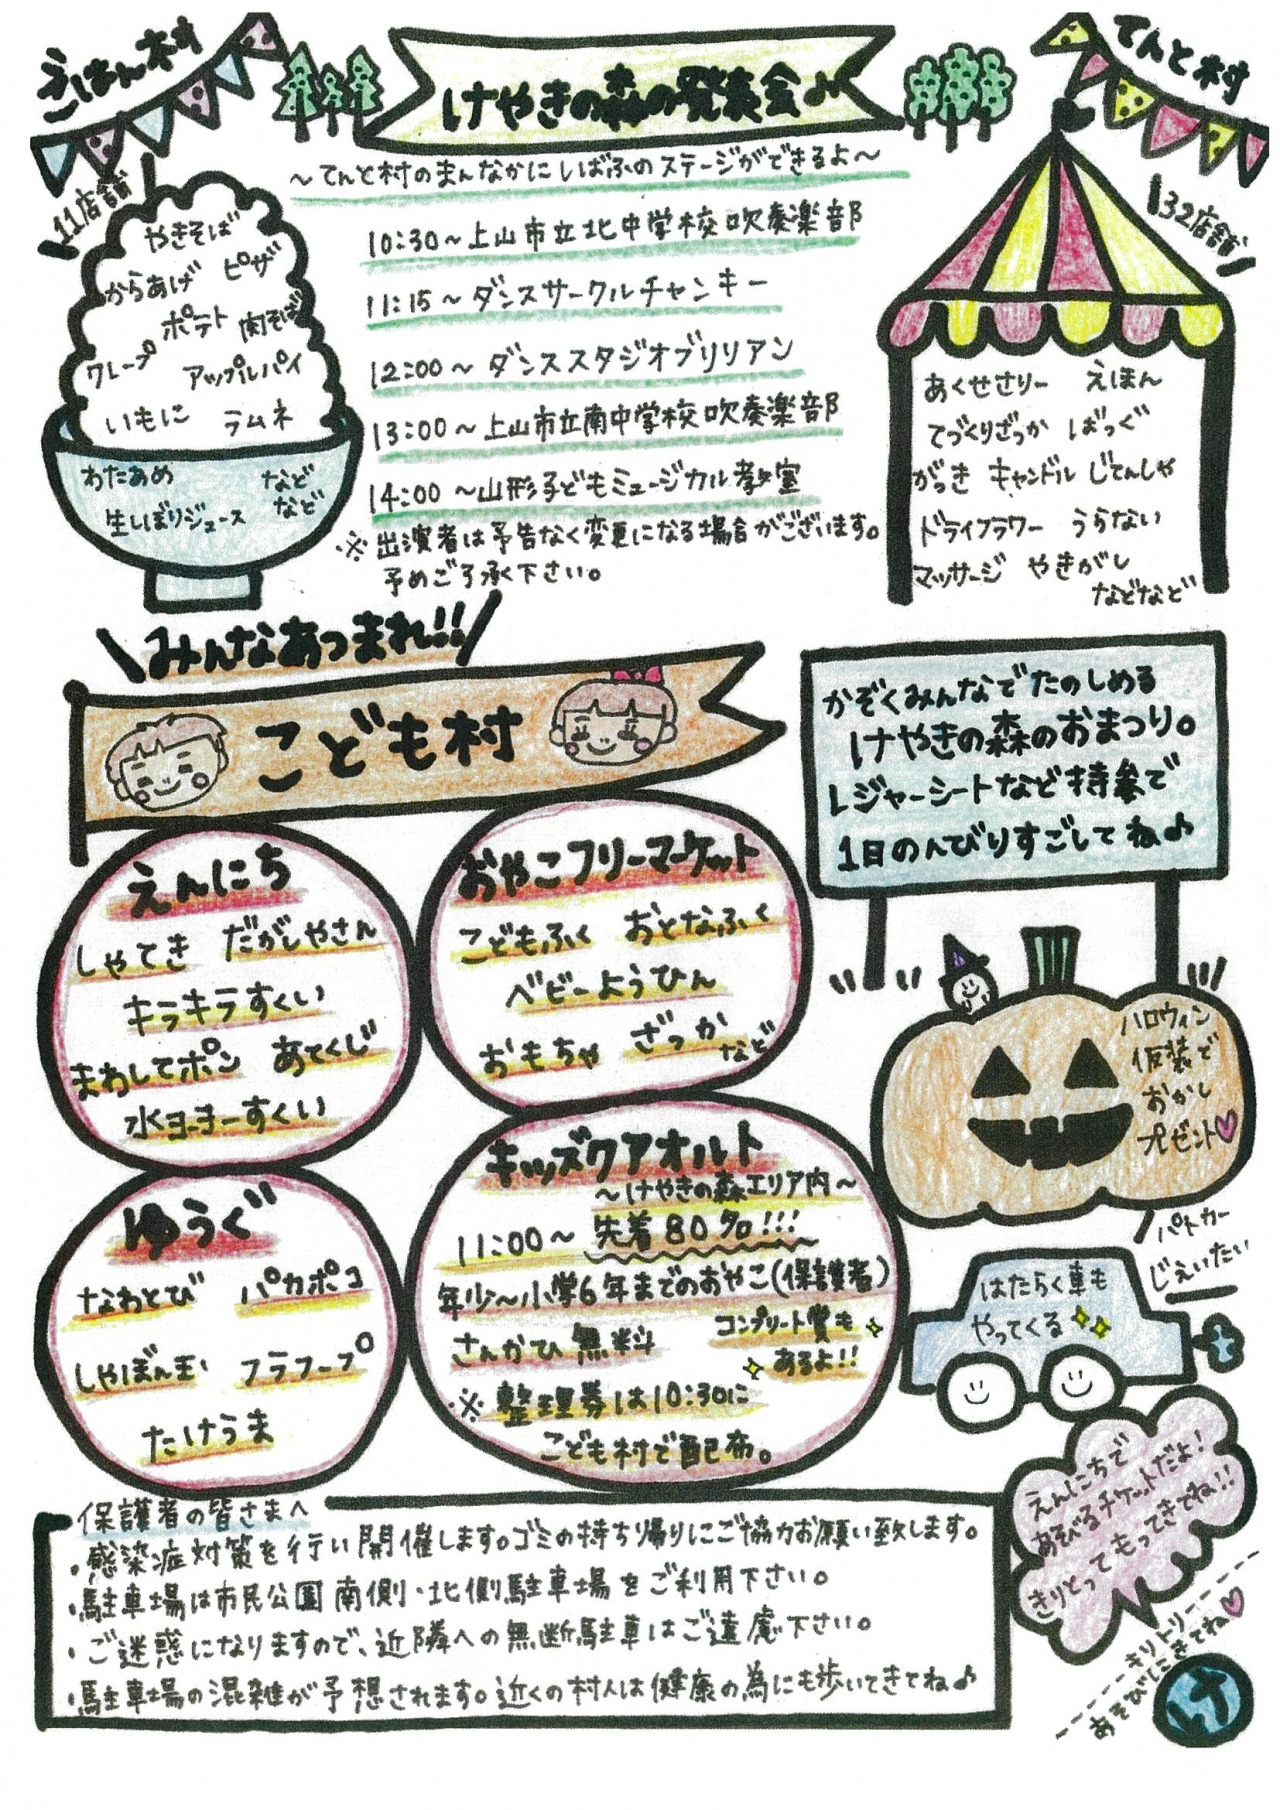 ごはん村
11店舗
やきそば
からあげ ピザ
ポテト 肉そば
クレープ アップルパイ
いもに ラムネ
わたあめ などなど
生しぼりジュース
けやきの森の発表会♪
～てんと村のまんなかにしばふのステージができるよ～
10:30～上山市立北中学校吹奏楽部
11:15～ダンスサークルチャンキー
12:00～ダンススタジオブリリアン
13:00～上山市立南中学校吹奏楽部
14:00～山形子どもミュージカル教室
※出演者は予告なく変更になる場合がございます。
予めご了承下さい。
てんと村
32店舗
あくせさりー えほん
てづくりざっか ばっぐ
がっき キャンドル じてんしゃ
ドライフラワー うらない
マッサージ やきがし
などなど
みんなあつまれ!!
こども村
えんにち
しゃてき だがしやさん
キラキラすくい
まわしてポン あてくじ
水ヨーヨーすくい
おやこフリーマーケット
こどもふく おとなふく
ベビーようひん
おもちゃ ざっか
など
ゆうぐ
なわとび パカポコ
しゃぼん玉 フラフープ
たけうま
キッズクアオルト
～けやきの森エリア内～
11:00～ 先着80名!!!
年少～小学6年までのおやこ(保護者)
さんかひ無料 コンプリート賞も
あるよ!!
※整理券は10:30に
こども村で配布。
かぞくみんなでたのしめる
けやきの森のおまつり。
レジャーシートなど持参で
1日のんびりすごしてね♪
ハロウィン
仮装で
おかし
プレゼント♡
パトカー
じえいたい
はたらく車も
やってくる
えんにちで
あそべるチケットだよ!
きりとってもってきてね!!
キリトリ
あそびにきてね♡
け
保護者の皆さまへ
・感染症対策を行い開催します。ゴミの持ち帰りにご協力お願い致します。
・駐車場は市民公園南側・北側駐車場をご利用下さい。
・ご迷惑になりますので、近隣への無断駐車はご遠慮下さい。
・駐車場の混雑が予想されます。近くの村人は健康の為にも歩いてきてね♪